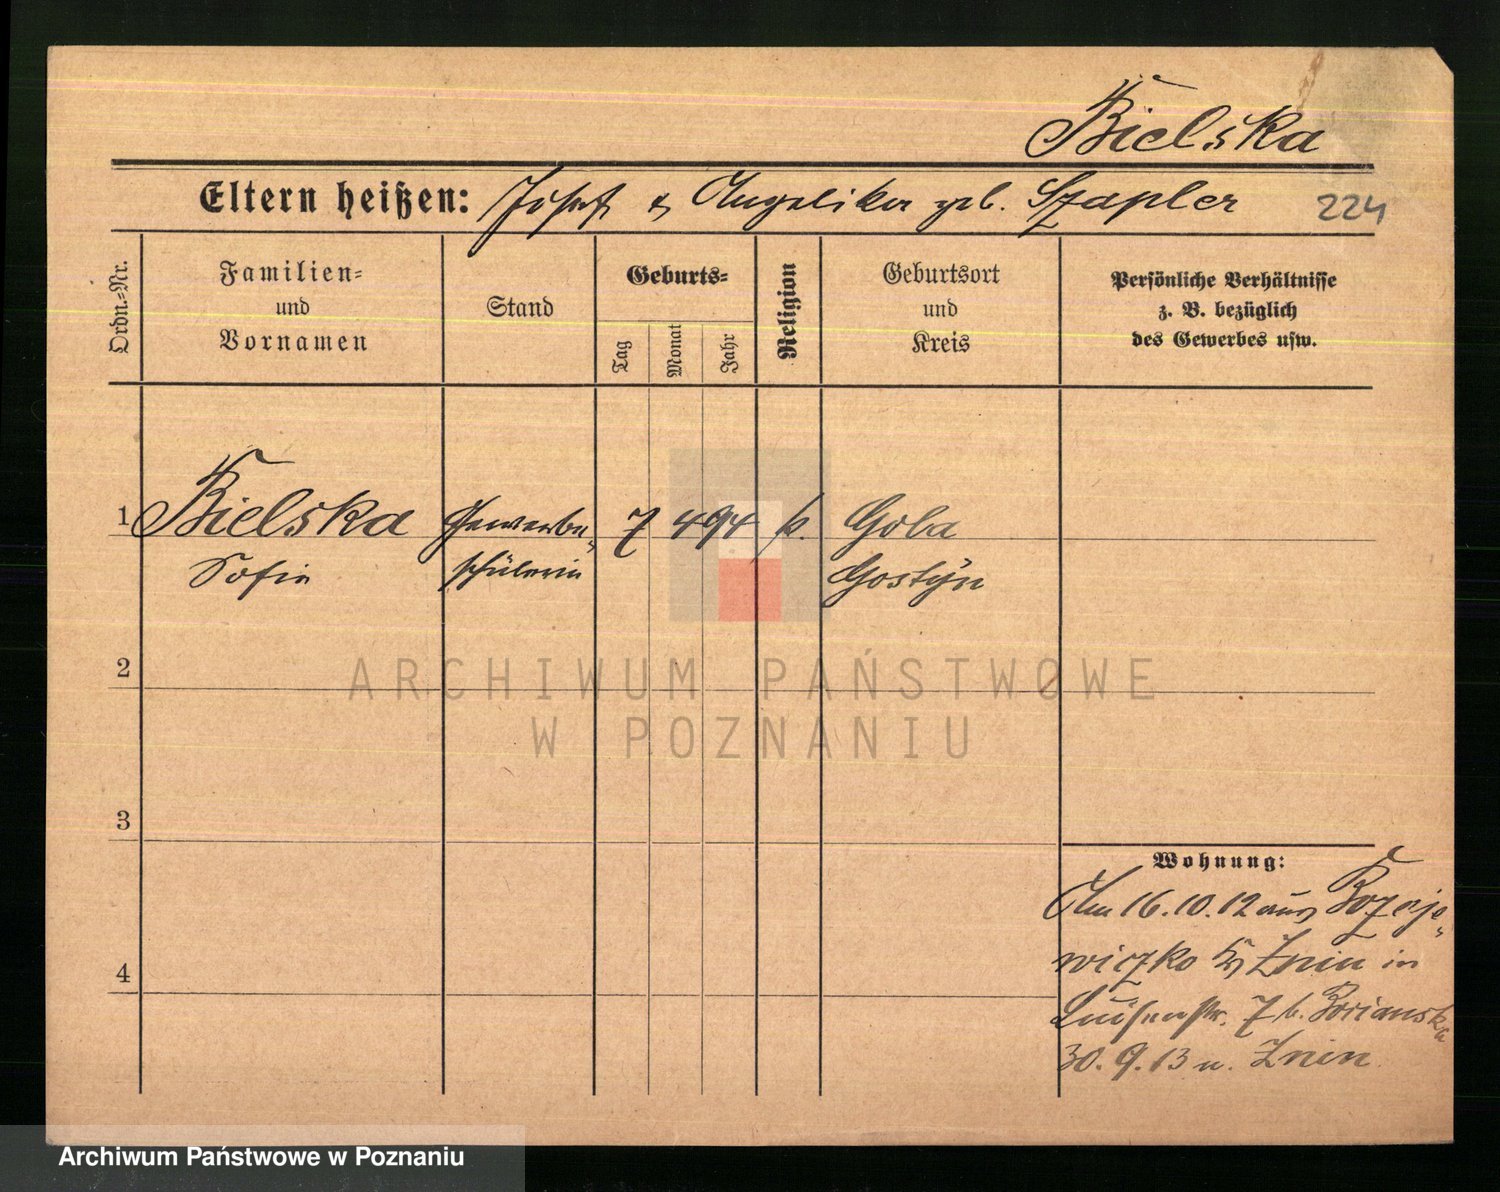 Bielska
Eltern heißen: Josef & Angelika geb. Szapler 224
Ordn.=Nr.
Familien=
und
Vornamen
Stand
Geburts=
Tag
Monat
Jahr
Religion
Geburtsort
und
Kreis
Persönliche Verhältnisse
z. B. bezüglich
des Gewerbes usw.
1 Bielska Gewerbe= 7 4 94 k. Gola
Sofie schülerin Gostyn
2
3
4
Wohnung:
Am 16.10.12 aus Bozeje=
wiczko Kr Znin in
Luisenstr. 7 b. Borianska
30.9.13 n. Znin
ARCHIWUM PAŃSTWOWE
W POZNANIU
Archiwum Państwowe w Poznaniu